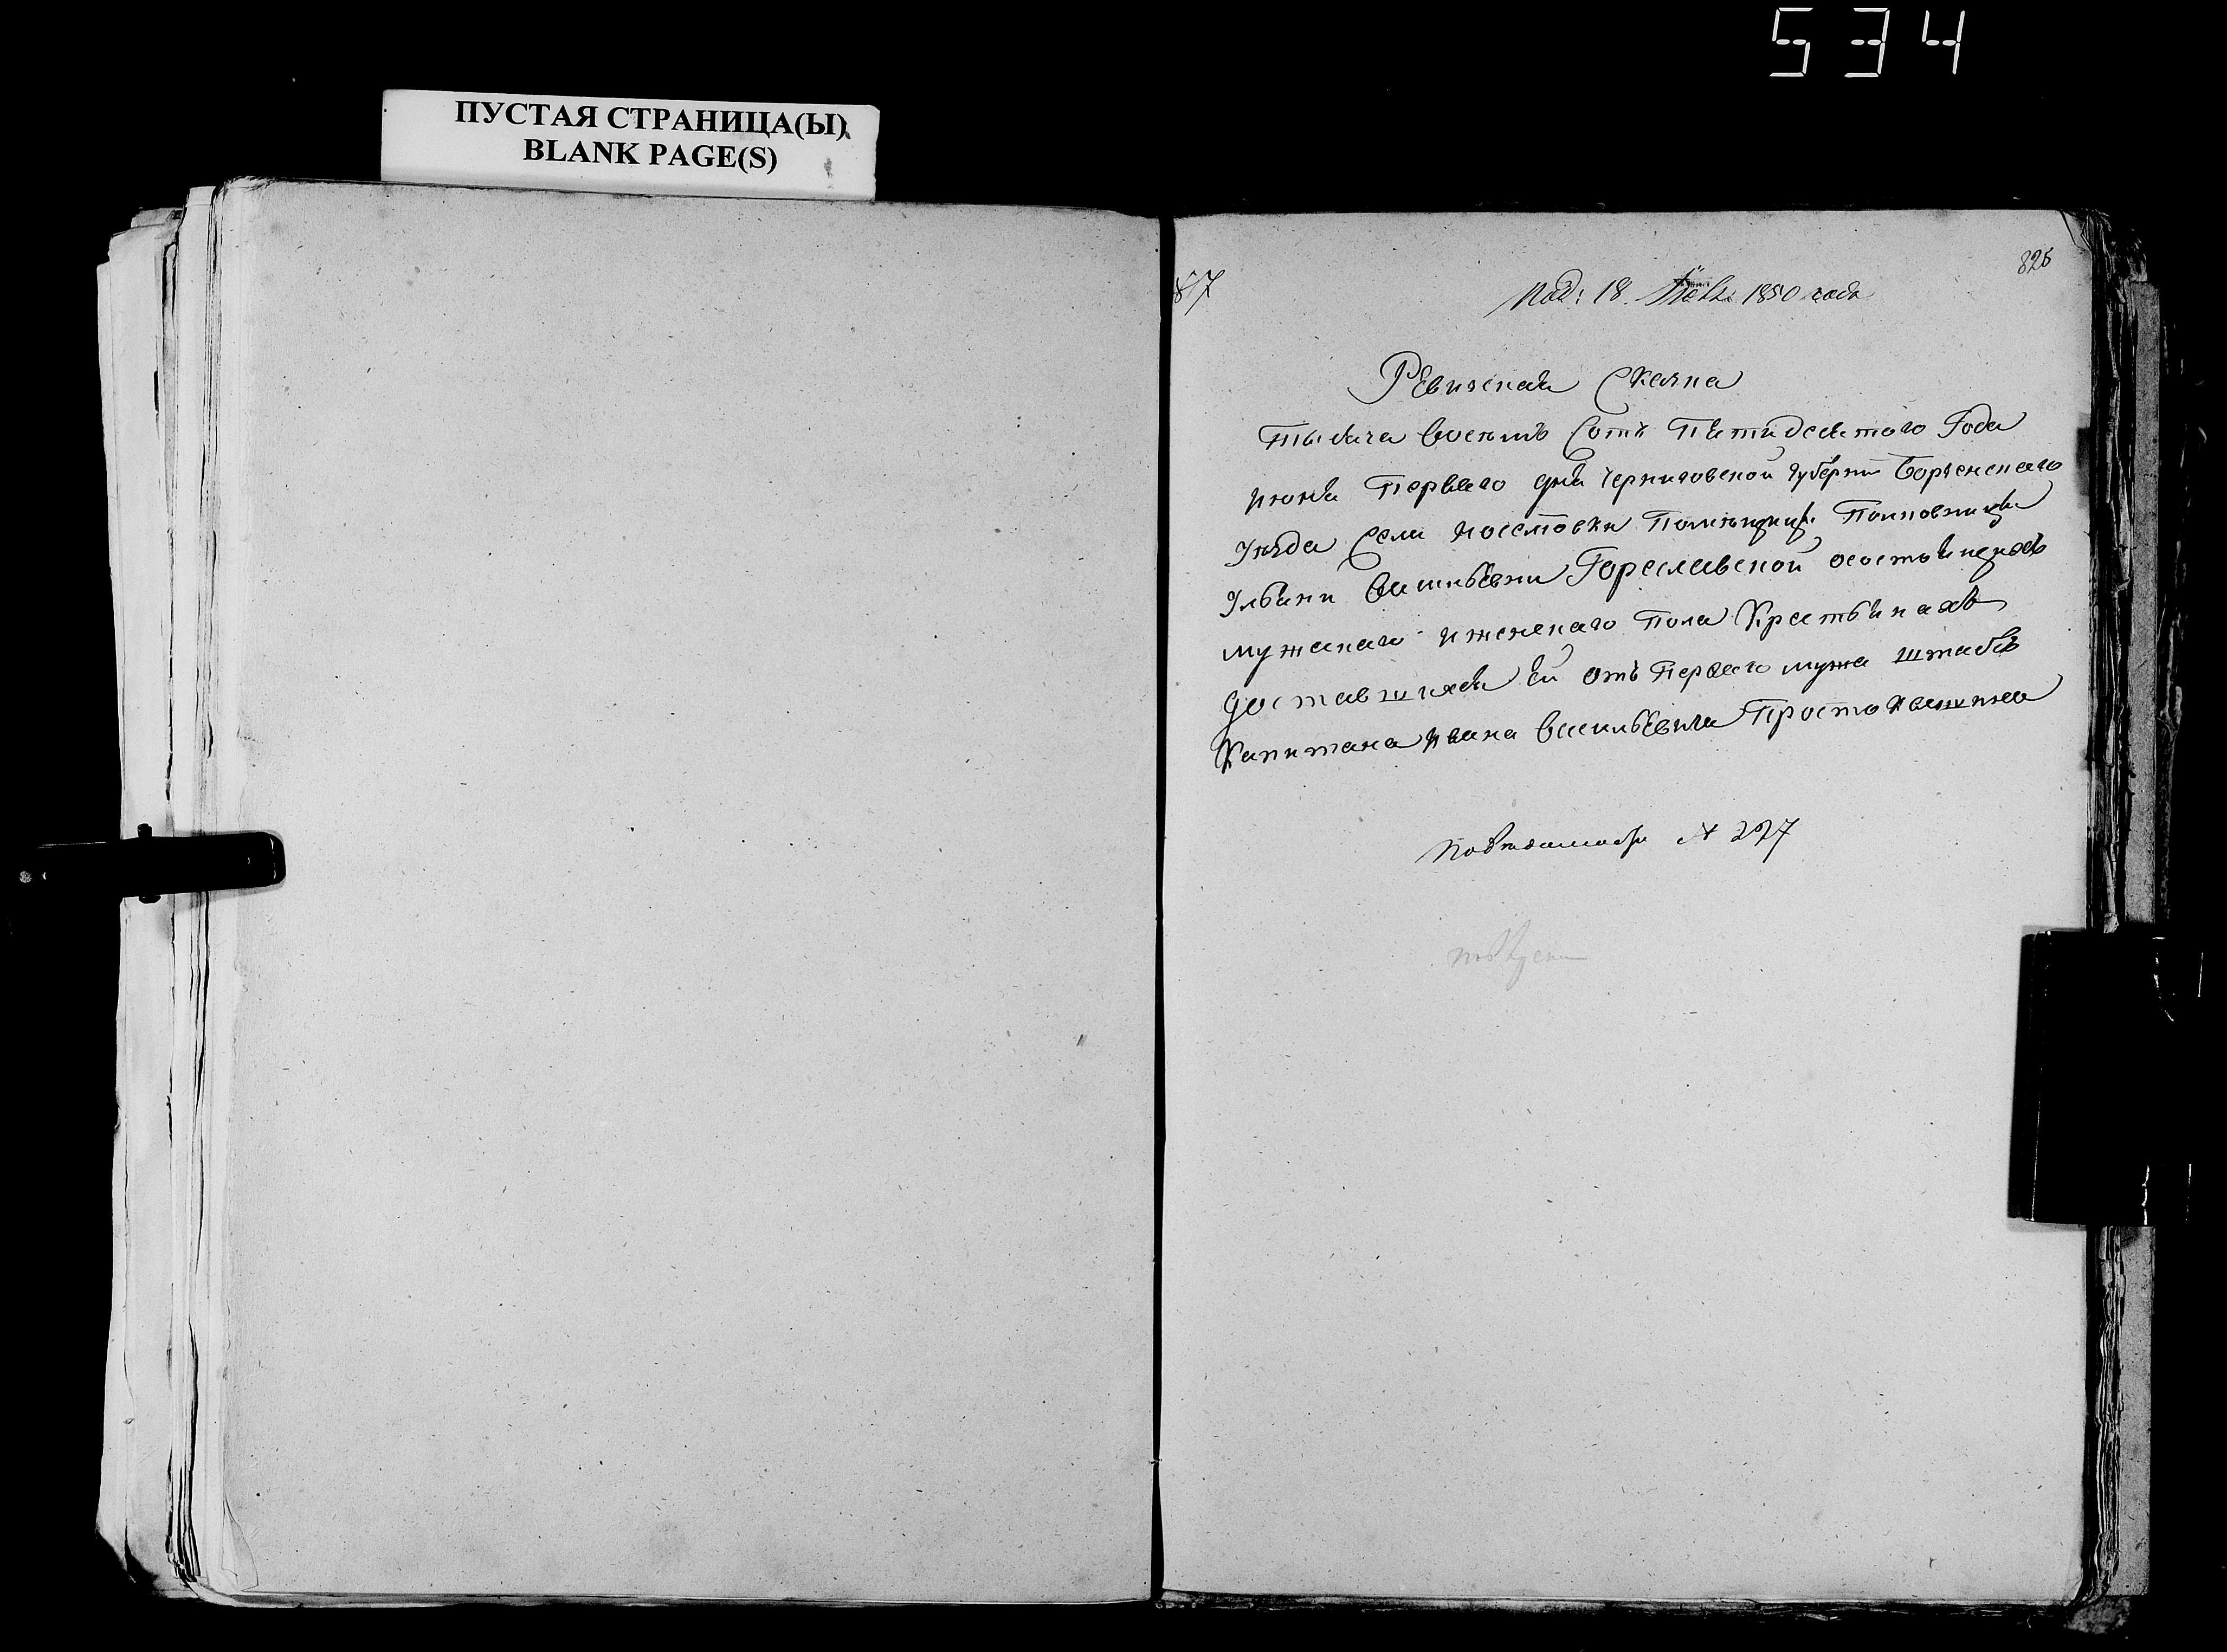 534
ПУСТАЯ СТРАНИЦА(Ы)
BLANK PAGE(S)
87
826
Под: 18 1850 года
Ревизская Сказка
Тысяча восемь Сотъ Пятидесятого Года
Июня Первого дня Черниговской губернии Борзенскаго
Уезда Села Носелювки Помещицы Полковницы
Ульяни Васильевни Гореславской осостоящихъ
мужескаго и женскаго пола Крестьянахъ
доставшихся ей отъ Перваго мужа штабсъ
Капитана Ивана Васильевича Простоквашина
№ 297